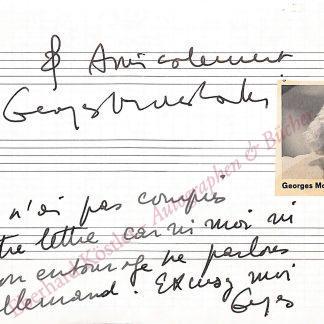 & Amicalement
Georges Moustaki
n'ai pas compris
tre lettre car ni moi ni
on entourage ne parlons
llemand. Excusez moi
Georges Mo
Eberhard Köstler Autographen & Bücher